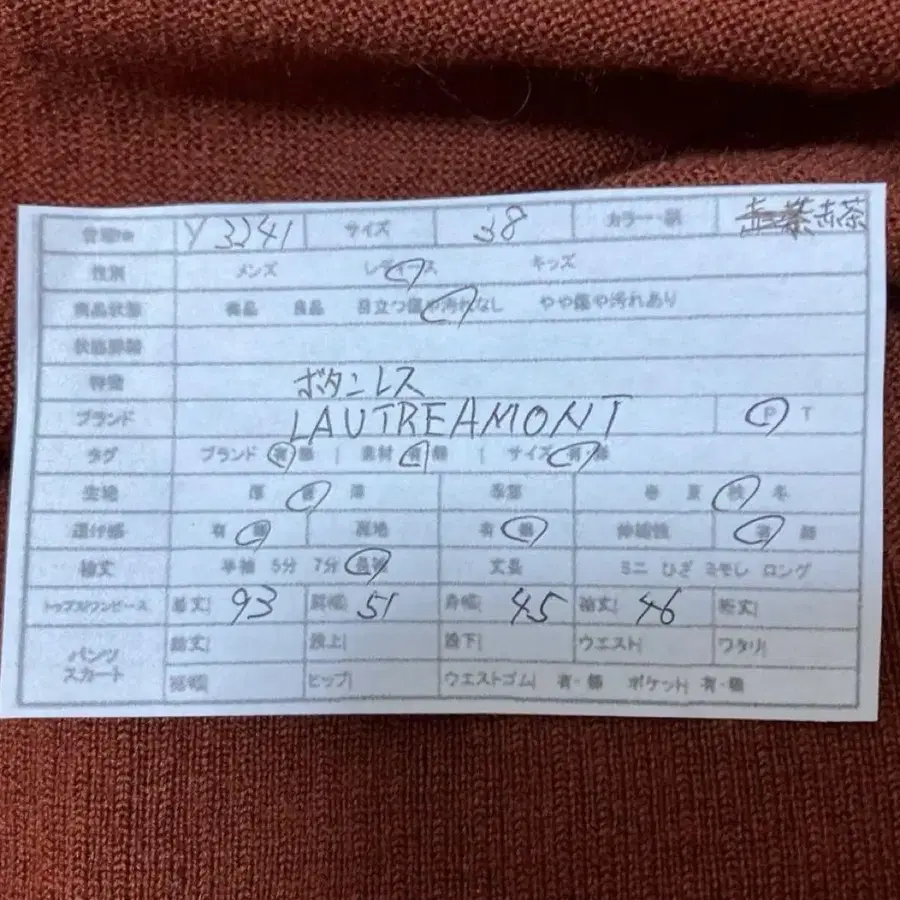 管理No Y3241 サイズ 38 カラー・柄 赤茶
性別 メンズ レディース キッズ
商品状態 美品 良品 目立つ傷や汚れなし やや傷や汚れあり
状態詳細
特徴 ボタンレス
ブランド LAUTREAMONT P T
タグ ブランド 有・無 | 素材 有・無 | サイズ 有・無
生地 厚 普 薄 季節 春 夏 秋 冬
透け感 有 無 裏地 有 無 伸縮性 有 無
袖丈 半袖 5分 7分 長袖 丈長 ミニ ひざ ミモレ ロング
トップス/ワンピース 着丈| 93 肩幅| 51 身幅| 45 袖丈| 46 裄丈|
パンツ スカート 総丈| 股上| 股下| ウエスト| ワタリ|
裾幅| ヒップ| ウエストゴム| 有・無 ポケット| 有・無